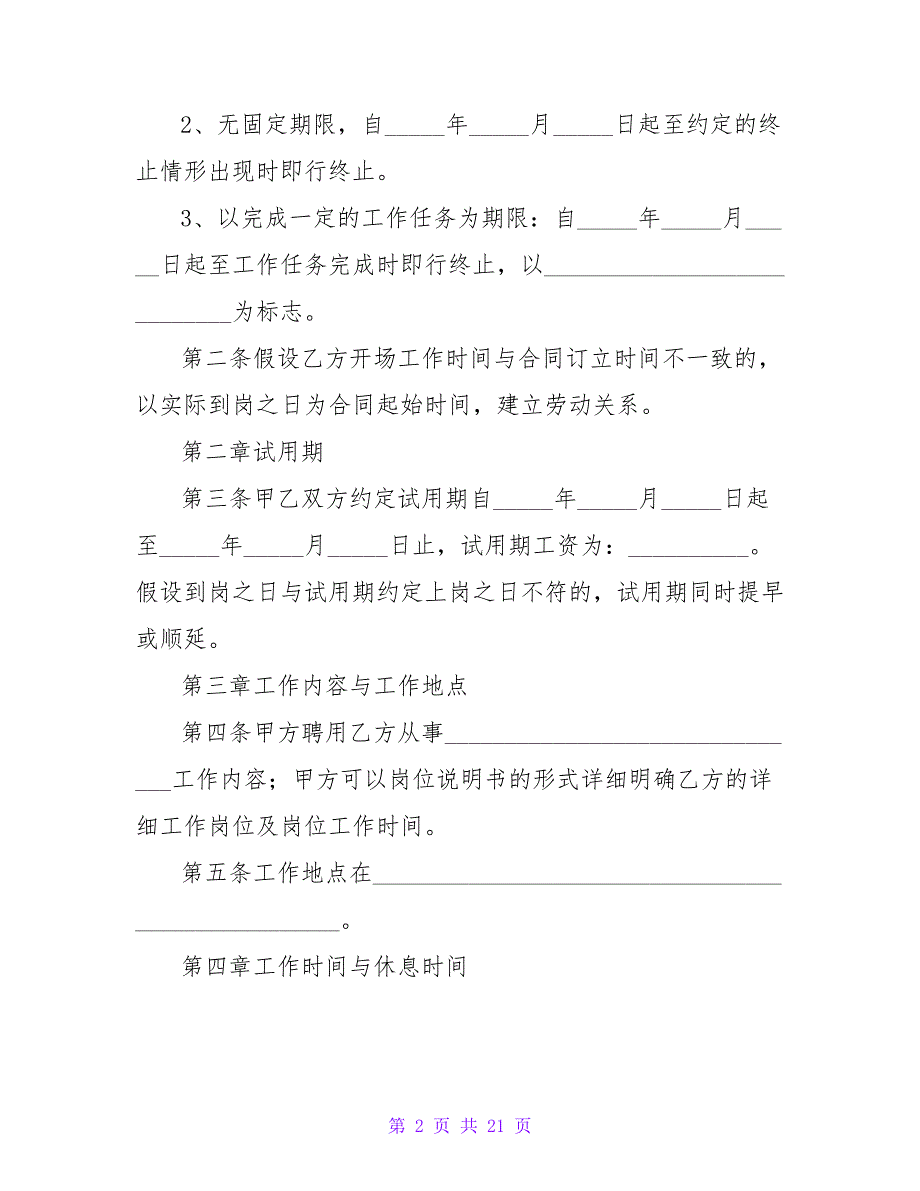 2、无固定期限，自_____年_____月_____日起至约定的终
止情形出现时即行终止。
3、以完成一定的工作任务为期限：自_____年_____月___
__日起至工作任务完成时即行终止，以____________________
________为标志。
第二条假设乙方开场工作时间与合同订立时间不一致的，
以实际到岗之日为合同起始时间，建立劳动关系。
第二章试用期
第三条甲乙双方约定试用期自_____年_____月_____日起
至_____年_____月_____日止，试用期工资为：__________。
假设到岗之日与试用期约定上岗之日不符的，试用期同时提早
或顺延。
第三章工作内容与工作地点
第四条甲方聘用乙方从事____________________________
___工作内容；甲方可以岗位说明书的形式详细明确乙方的详
细工作岗位及岗位工作时间。
第五条工作地点在__________________________________
_________________。
第四章工作时间与休息时间
第 2 页 共 21 页